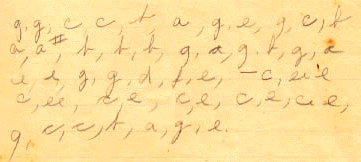 g, g, c, c, t, a, g, e, g, c, t
a, a#, t, t, t, g, a, g, t, g, a
e, e, g, g, d, f, e, - c, e e
c, e e, c, e, c, e, c, e, c, e, e
g, c, c, t, a, g, e.